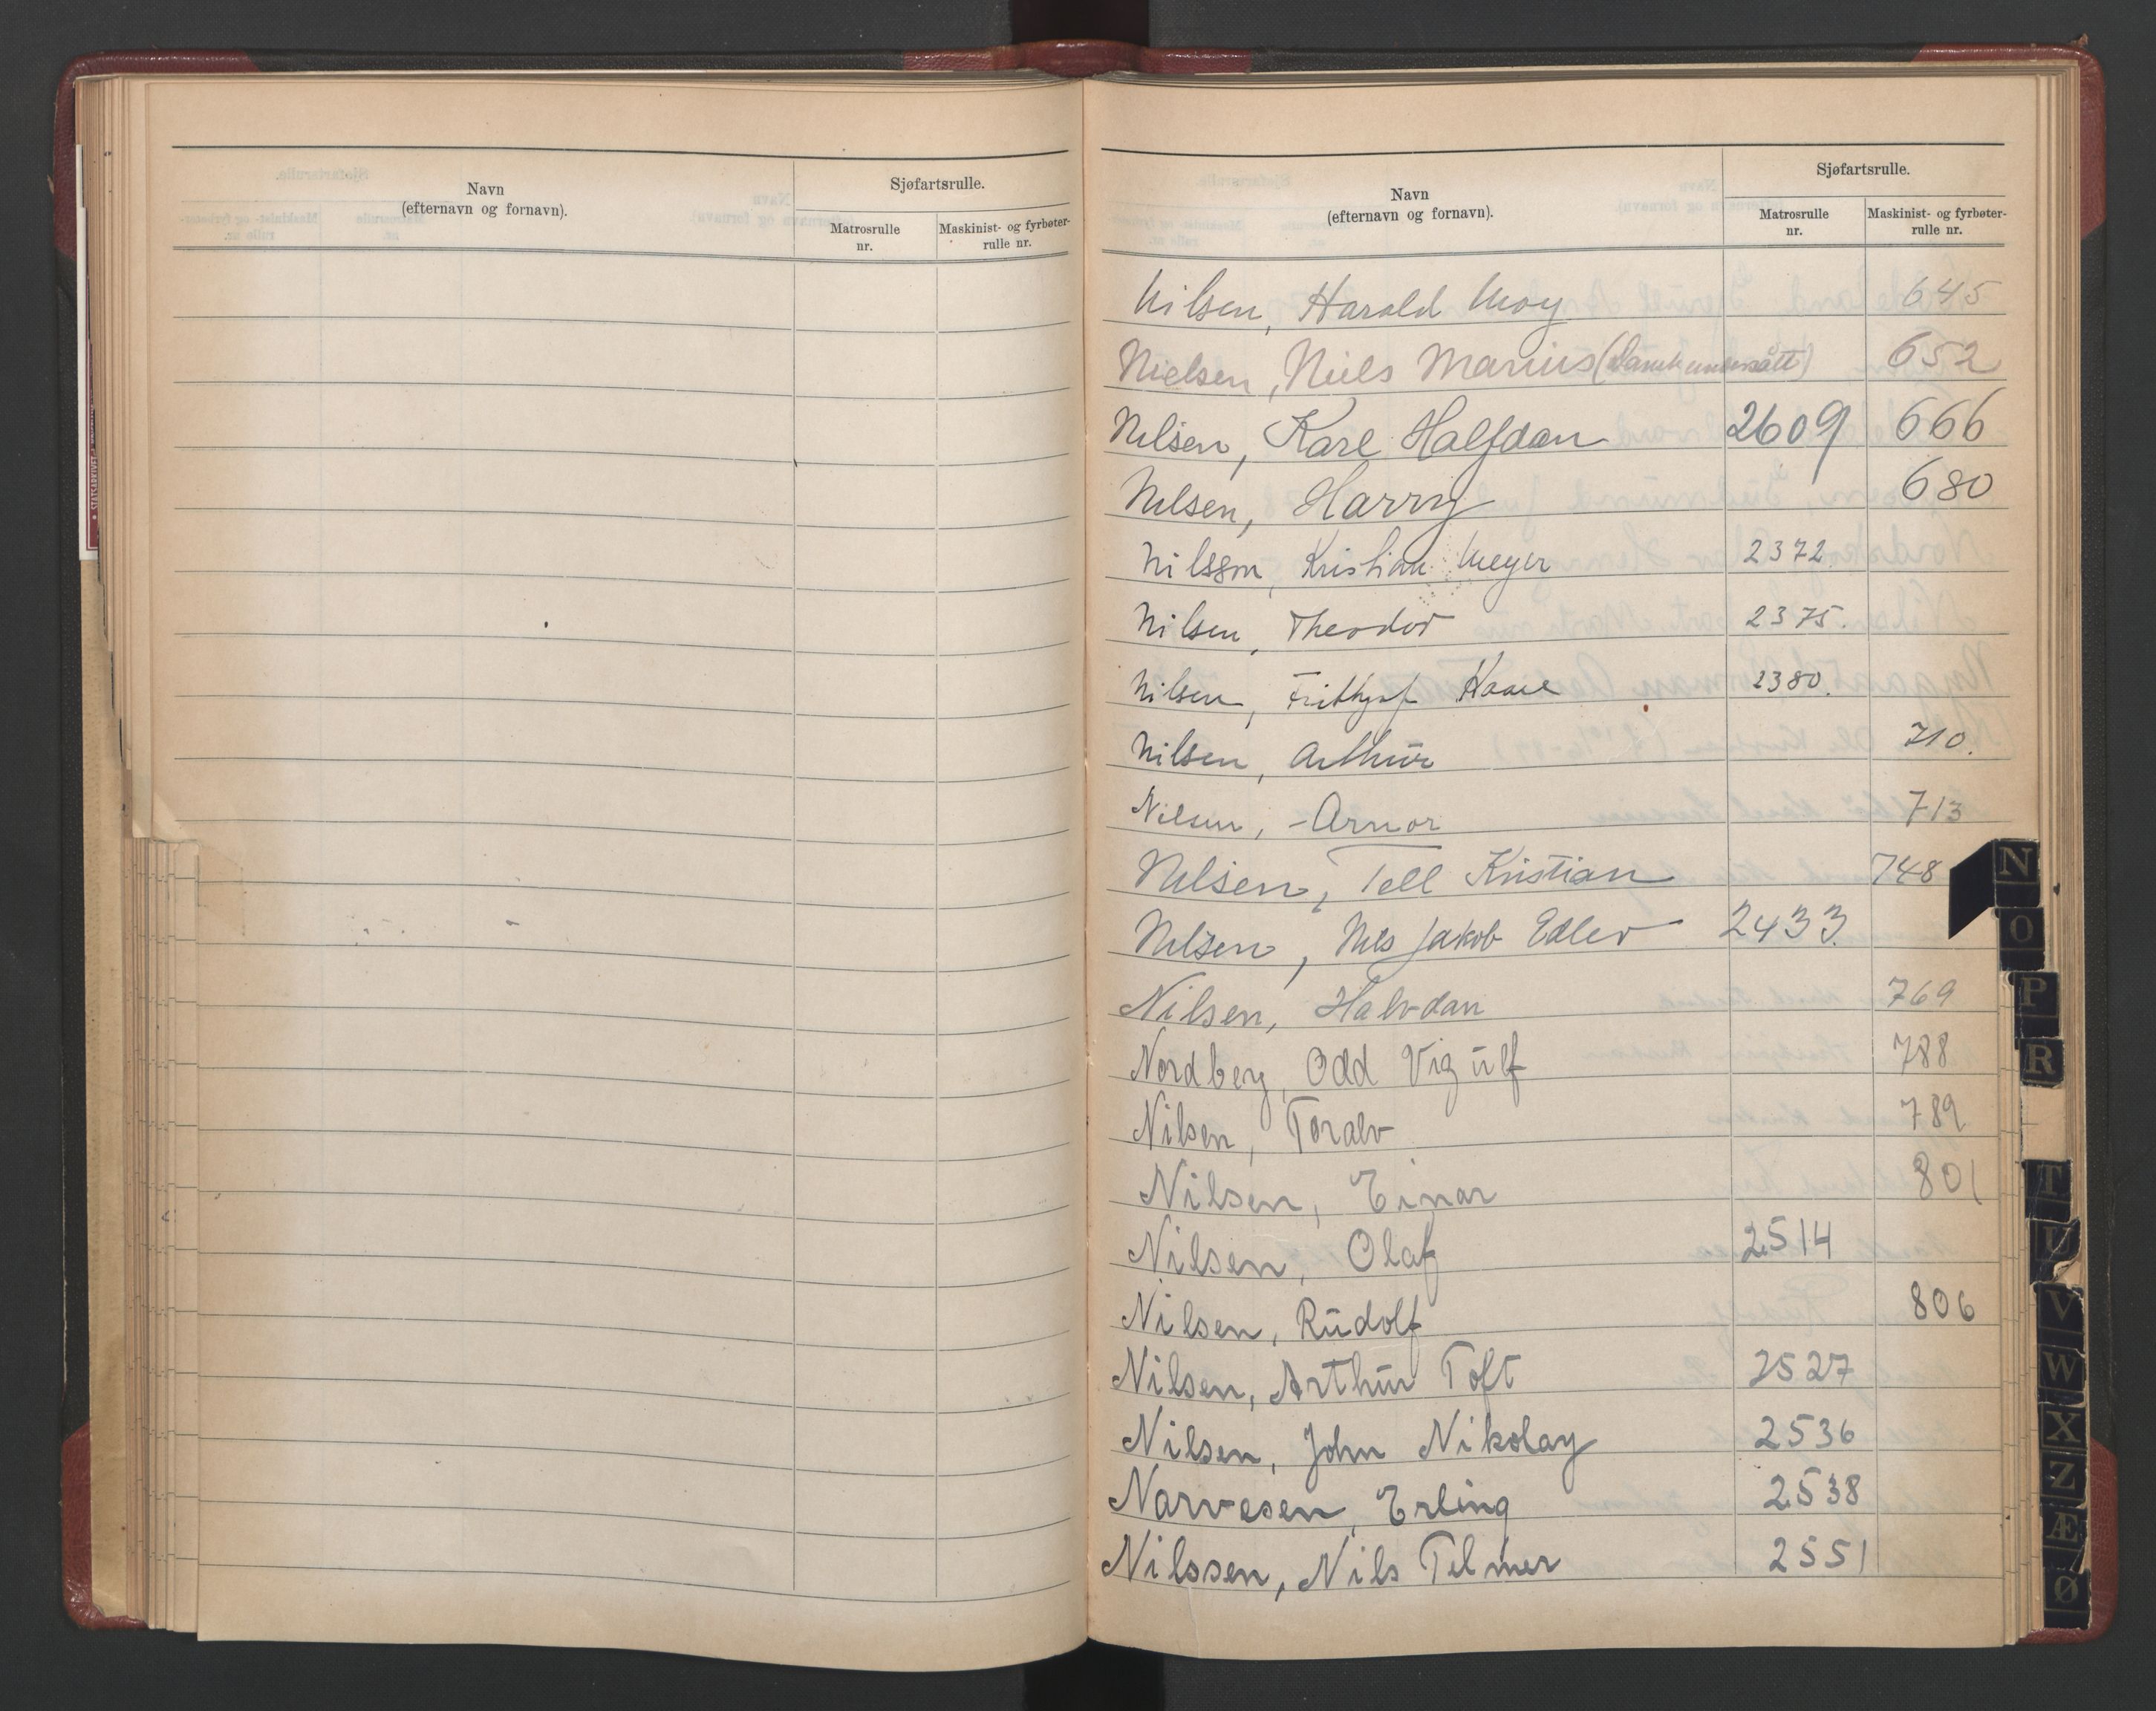 Navn
(efternavn og fornavn).
Sjøfartsrulle.
Matrosrulle
nr.
Maskinist- og fyrbøter-
rulle nr.
Navn
(efternavn og fornavn).
Sjøfartsrulle.
Matrosrulle
nr.
Maskinist- og fyrbøter-
rulle nr.
Nilsen, Harald Moy 645
Nielsen, Niels Marius (Dansk undersått) 652
Nilsen, Kåre Halfdan 2609 666
Nilsen, Harry 680
Nilsson, Kristian Meyer 2372
Nilsen, Theodor 2375.
Nilsen, Frithjof Kaare 2380.
Nilsen, Arthur 710.
Nilsen, Arnor 713
Nilsen, Tell Kristian 748
Nilsen, Nils Jakob Edlev 2433.
Nilsen, Halvdan 769
Nordberg, Odd Vigulf 788
Nilsen, Toralv 789
Nilsen, Einar 801
Nilsen, Olaf 2514
Nilsen, Rudolf 806
Nilsen, Arthur Toft 2527
Nilsen, John Nikolay 2536
Narvesen, Erling 2538
Nilssen, Nils Telmer 2551
N
O
P
R
T
U
V
W
X
Z
Æ
Ø